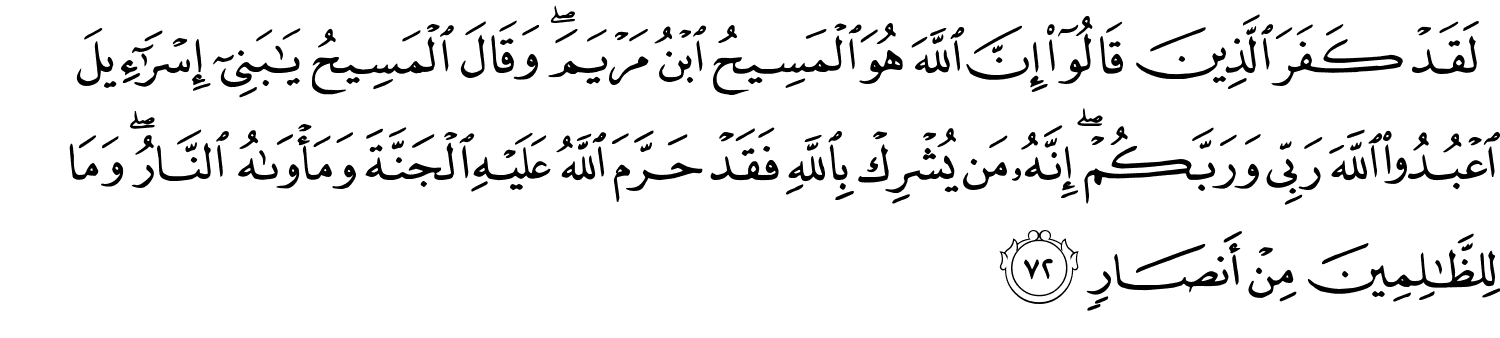 لَقَدۡ كَفَرَ ٱلَّذِينَ قَالُوٓاْ إِنَّ ٱللَّهَ هُوَ ٱلۡمَسِيحُ ٱبۡنُ مَرۡيَمَۖ وَقَالَ ٱلۡمَسِيحُ يَٰبَنِيٓ إِسۡرَٰٓءِيلَ
ٱعۡبُدُواْ ٱللَّهَ رَبِّي وَرَبَّكُمۡۖ إِنَّهُۥ مَن يُشۡرِكۡ بِٱللَّهِ فَقَدۡ حَرَّمَ ٱللَّهُ عَلَيۡهِ ٱلۡجَنَّةَ وَمَأۡوَىٰهُ ٱلنَّارُۖ وَمَا
لِلظَّٰلِمِينَ مِنۡ أَنصَارٖ ٧٢